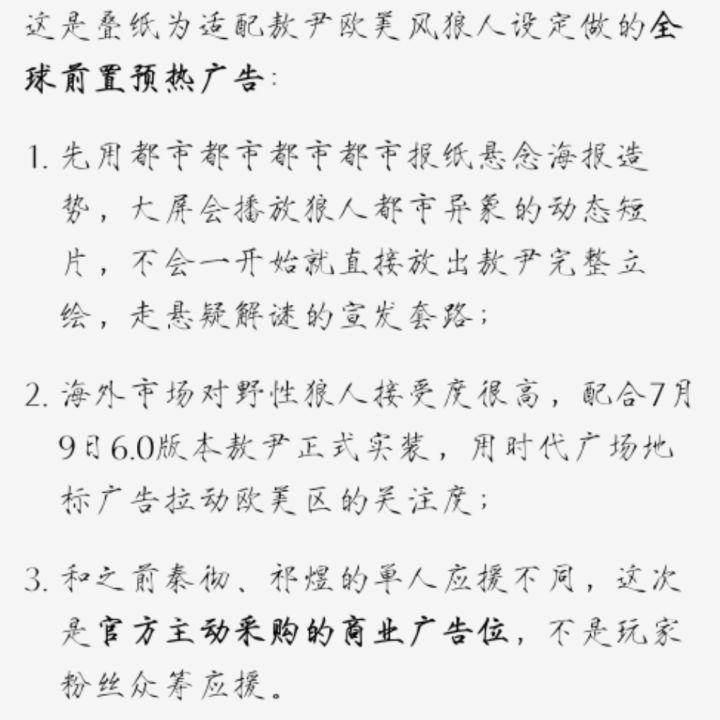 这是叠纸为适配敖尹欧美风狼人设定做的全
球前置预热广告：
1. 先用都市都市都市都市报纸悬念海报造
势，大屏会播放狼人都市异象的动态短
片，不会一开始就直接放出敖尹完整立
绘，走悬疑解谜的宣发套路；
2. 海外市场对野性狼人接受度很高，配合7月
9日6.0版本敖尹正式实装，用时代广场地
标广告拉动欧美区的关注度；
3. 和之前秦彻、祁煜的单人应援不同，这次
是官方主动采购的商业广告位，不是玩家
粉丝众筹应援。